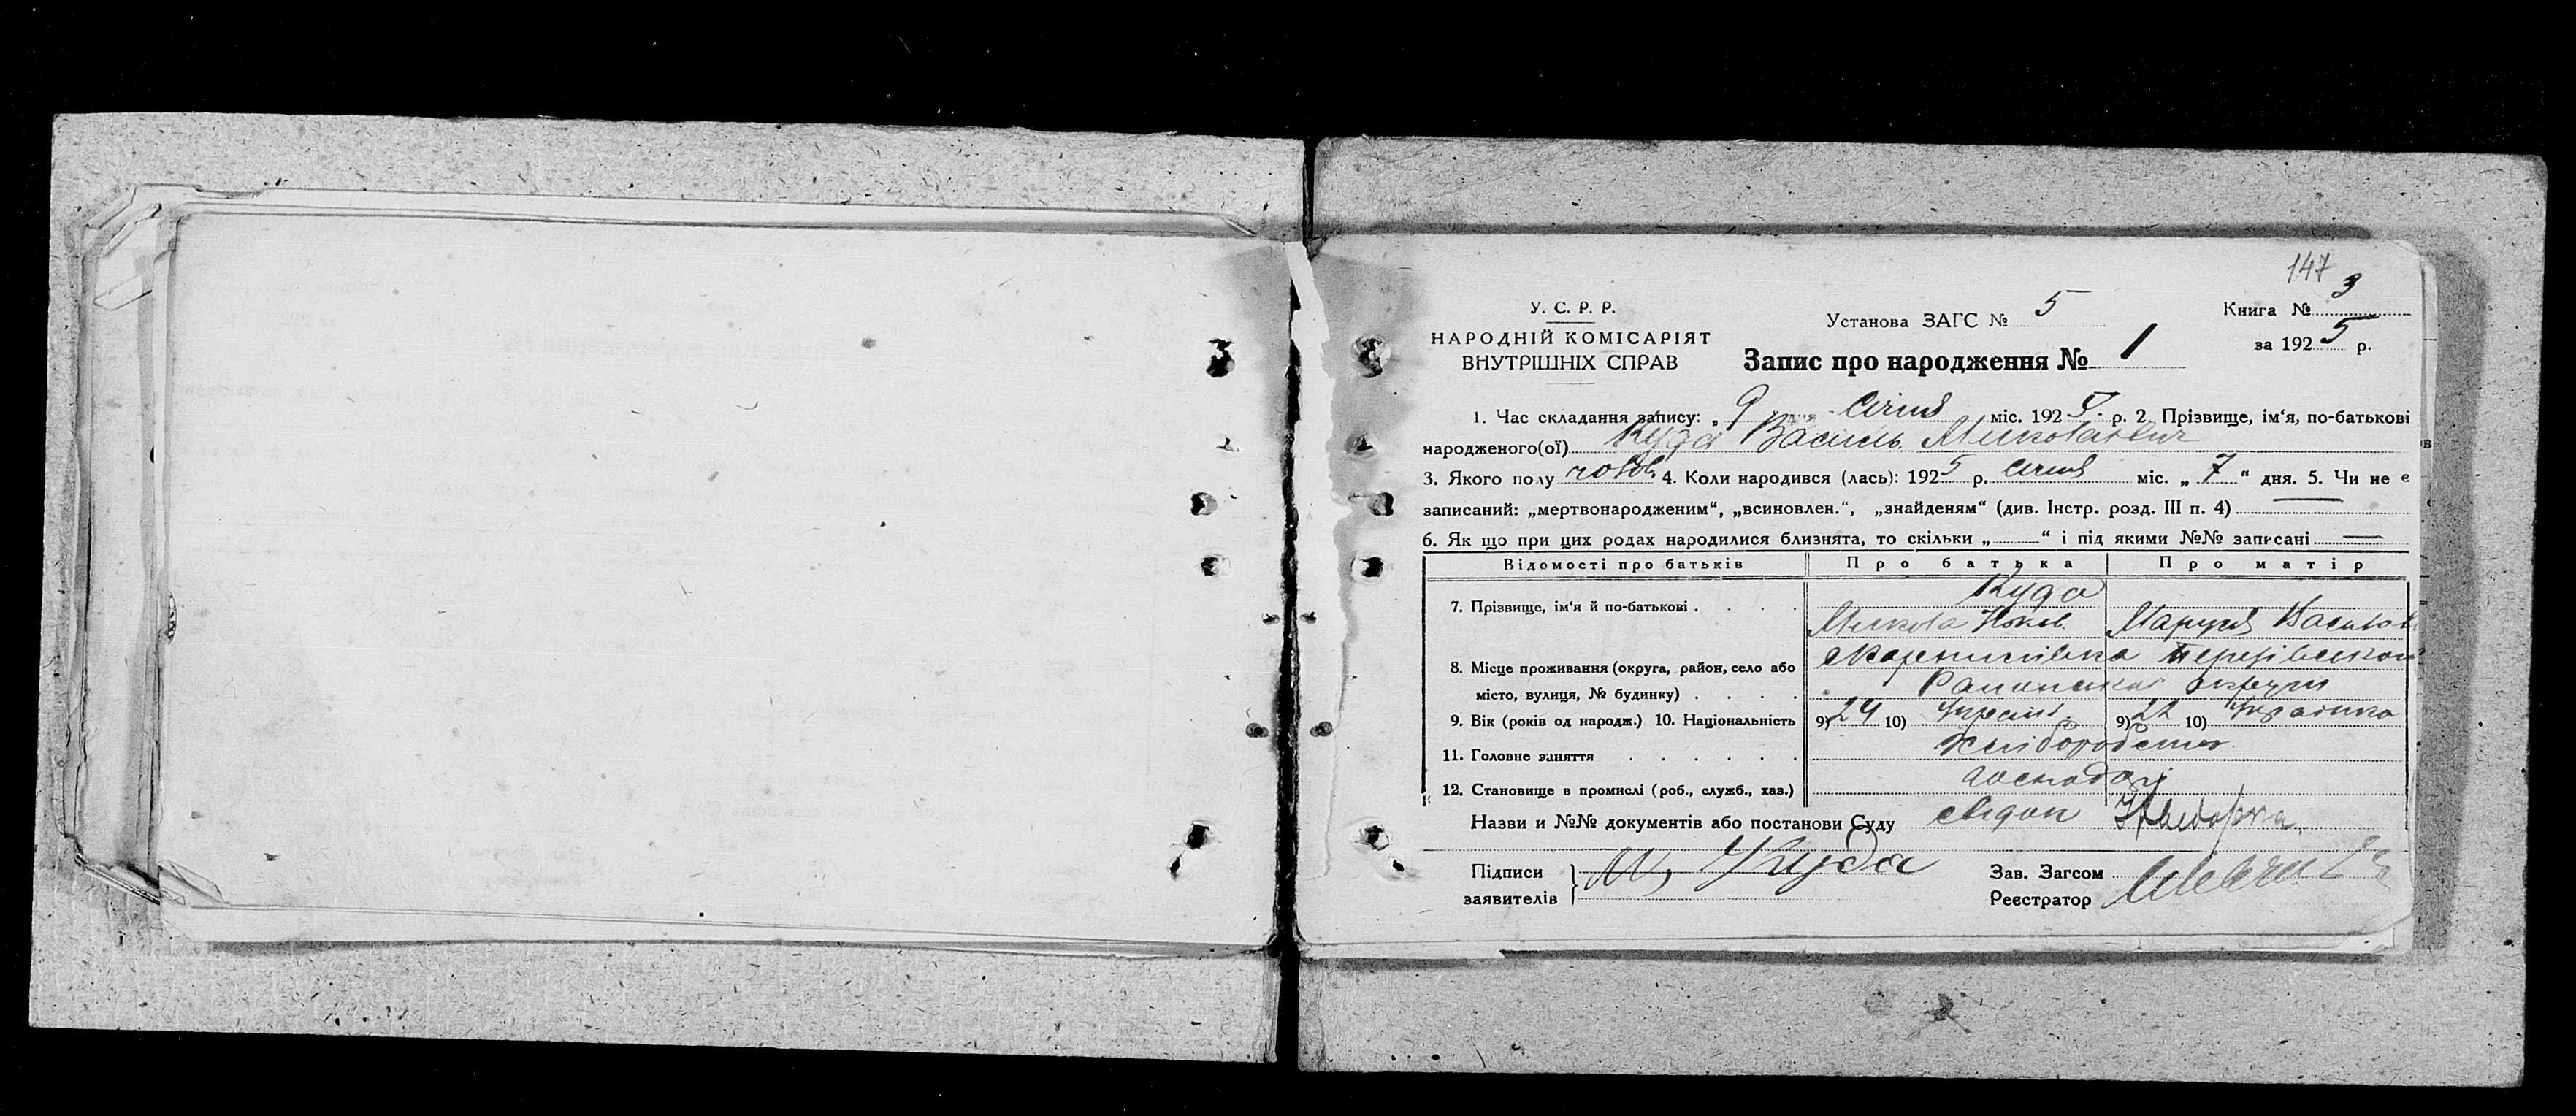 147
У. С. Р. Р.
НАРОДНІЙ КОМІСАРІЯТ
ВНУТРІШНІХ СПРАВ
Установа ЗАГС № 5
Книга № 3
за 1925 р.
Запис про народження № 1
1. Час складання запису: „ 9 дня січня міс. 1925 р. 2. Прізвище, ім'я, по-батькові
народженого(ої) Куда Василь Миколаевич
3. Якого полу чолов. 4. Коли народився (лась): 1925 р. січня міс. „ 7 “ дня. 5. Чи не є
записаний: „мертвонародженим“, „всиновлен.“, „знайденям“ (див. Інстр. розд. III п. 4)
6. Як що при цих родах народилися близнята, то скільки „ “ і під якими №№ записані
Відомості про батьків Про батька Про матір
7. Прізвище, ім'я й по-батькові . . . . Куда
Микола Маруся Васильов
8. Місце проживання (округа, район, село або
місто, вулиця, № будинку) . . . . Роменської округи
9. Вік (років од народж.) 10. Національність 9) 24 10) Україн. 9) 22 10) Українка
11. Головне заняття . . . . . . Хліборобство
12. Становище в промислі (роб., служб., хаз.) господарі
Назви и №№ документів або постанови Суду
Підписи
заявителів } М. Куда
Зав. Загсом
Реєстратор